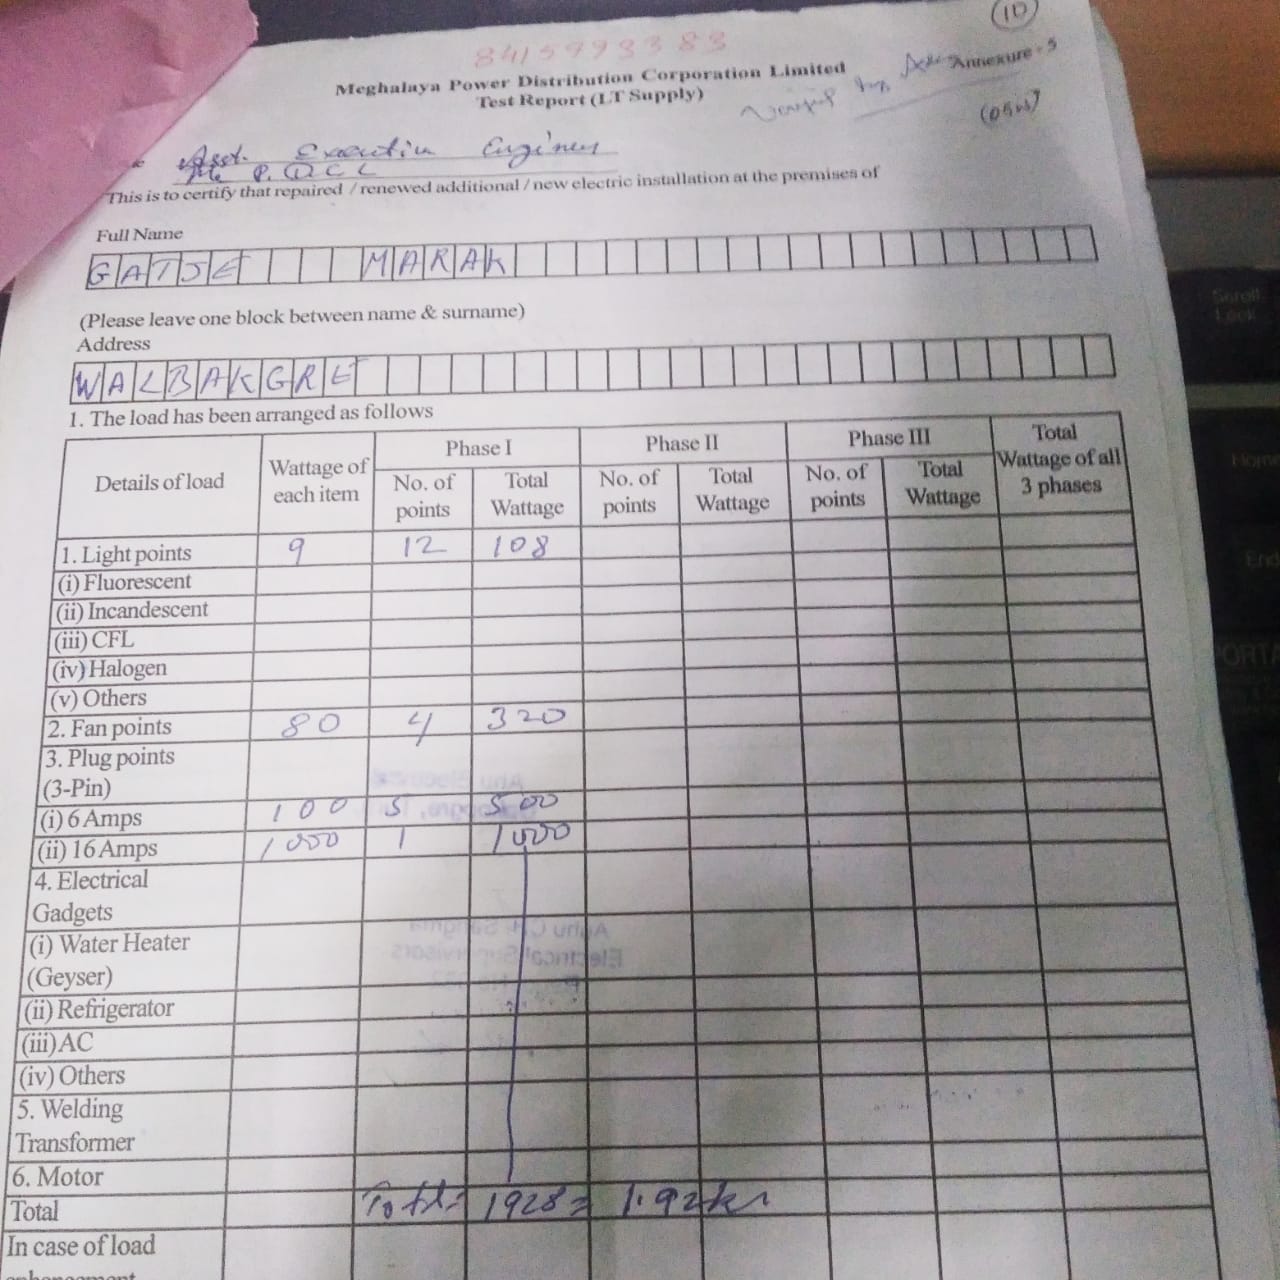 10
8415993383
Meghalaya Power Distribution Corporation Limited
Annexure - 5
Test Report (LT Supply)
Asst. Executive Engineer
This is to certify that repaired / renewed additional / new electric installation at the premises of
Full Name
GATJE MARAK
(Please leave one block between name & surname)
Address
WALBAKGRE
1. The load has been arranged as follows
Details of load Wattage of each item Phase I Phase II Phase III Total Wattage of all 3 phases
No. of points Total Wattage No. of points Total Wattage No. of points Total Wattage
1. Light points 9 12 108
(i) Fluorescent
(ii) Incandescent
(iii) CFL
(iv) Halogen
(v) Others
2. Fan points 80 4 320
3. Plug points
(3-Pin)
(i) 6 Amps 100 5 500
(ii) 16 Amps 1000 1 1000
4. Electrical
Gadgets
(i) Water Heater
(Geyser)
(ii) Refrigerator
(iii) AC
(iv) Others
5. Welding
Transformer
6. Motor
Total Total- 1928 = 1.92
In case of load
enhancement
Scroll
Lock
Home
End